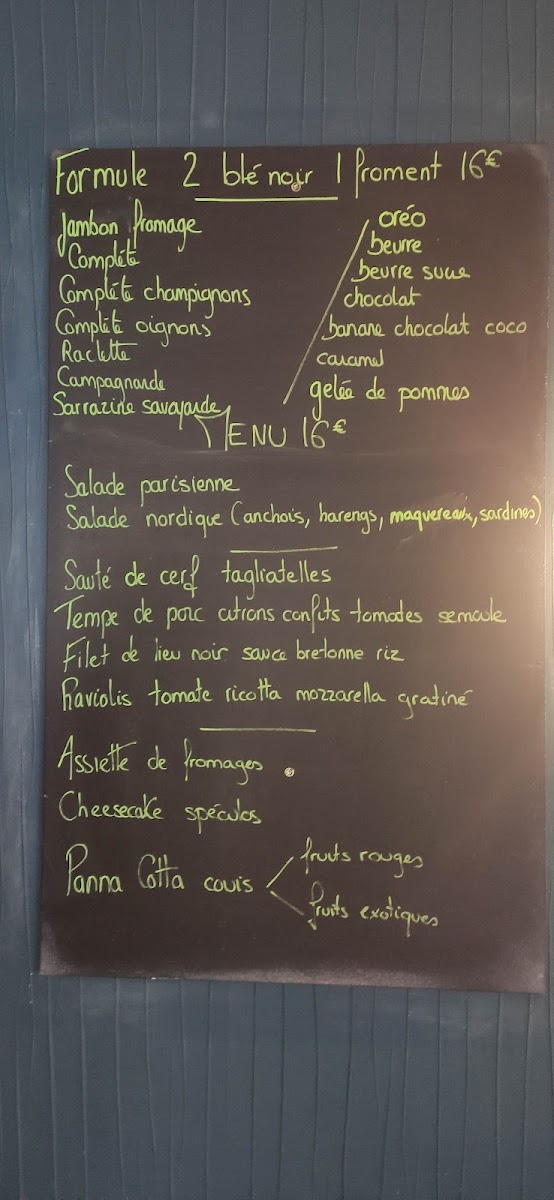 Formule 2 blé noir 1 froment 16€
Jambon fromage
Complète
Complète champignons
Complète oignons
Raclette
Campagnarde
Sarrazine savoyarde
oréo
beurre
beurre sucre
chocolat
banane chocolat coco
caramel
gelée de pommes
MENU 16€
Salade parisienne
Salade nordique (anchois, harengs, maquereaux, sardines)
Sauté de cerf tagliatelles
Tempe de porc citrons confits tomates semoule
Filet de lieu noir sauce bretonne riz
Raviolis tomate ricotta mozzarella gratiné
Assiette de fromages
Cheesecake spéculos
Panna Cotta coulis
fruits rouges
fruits exotiques